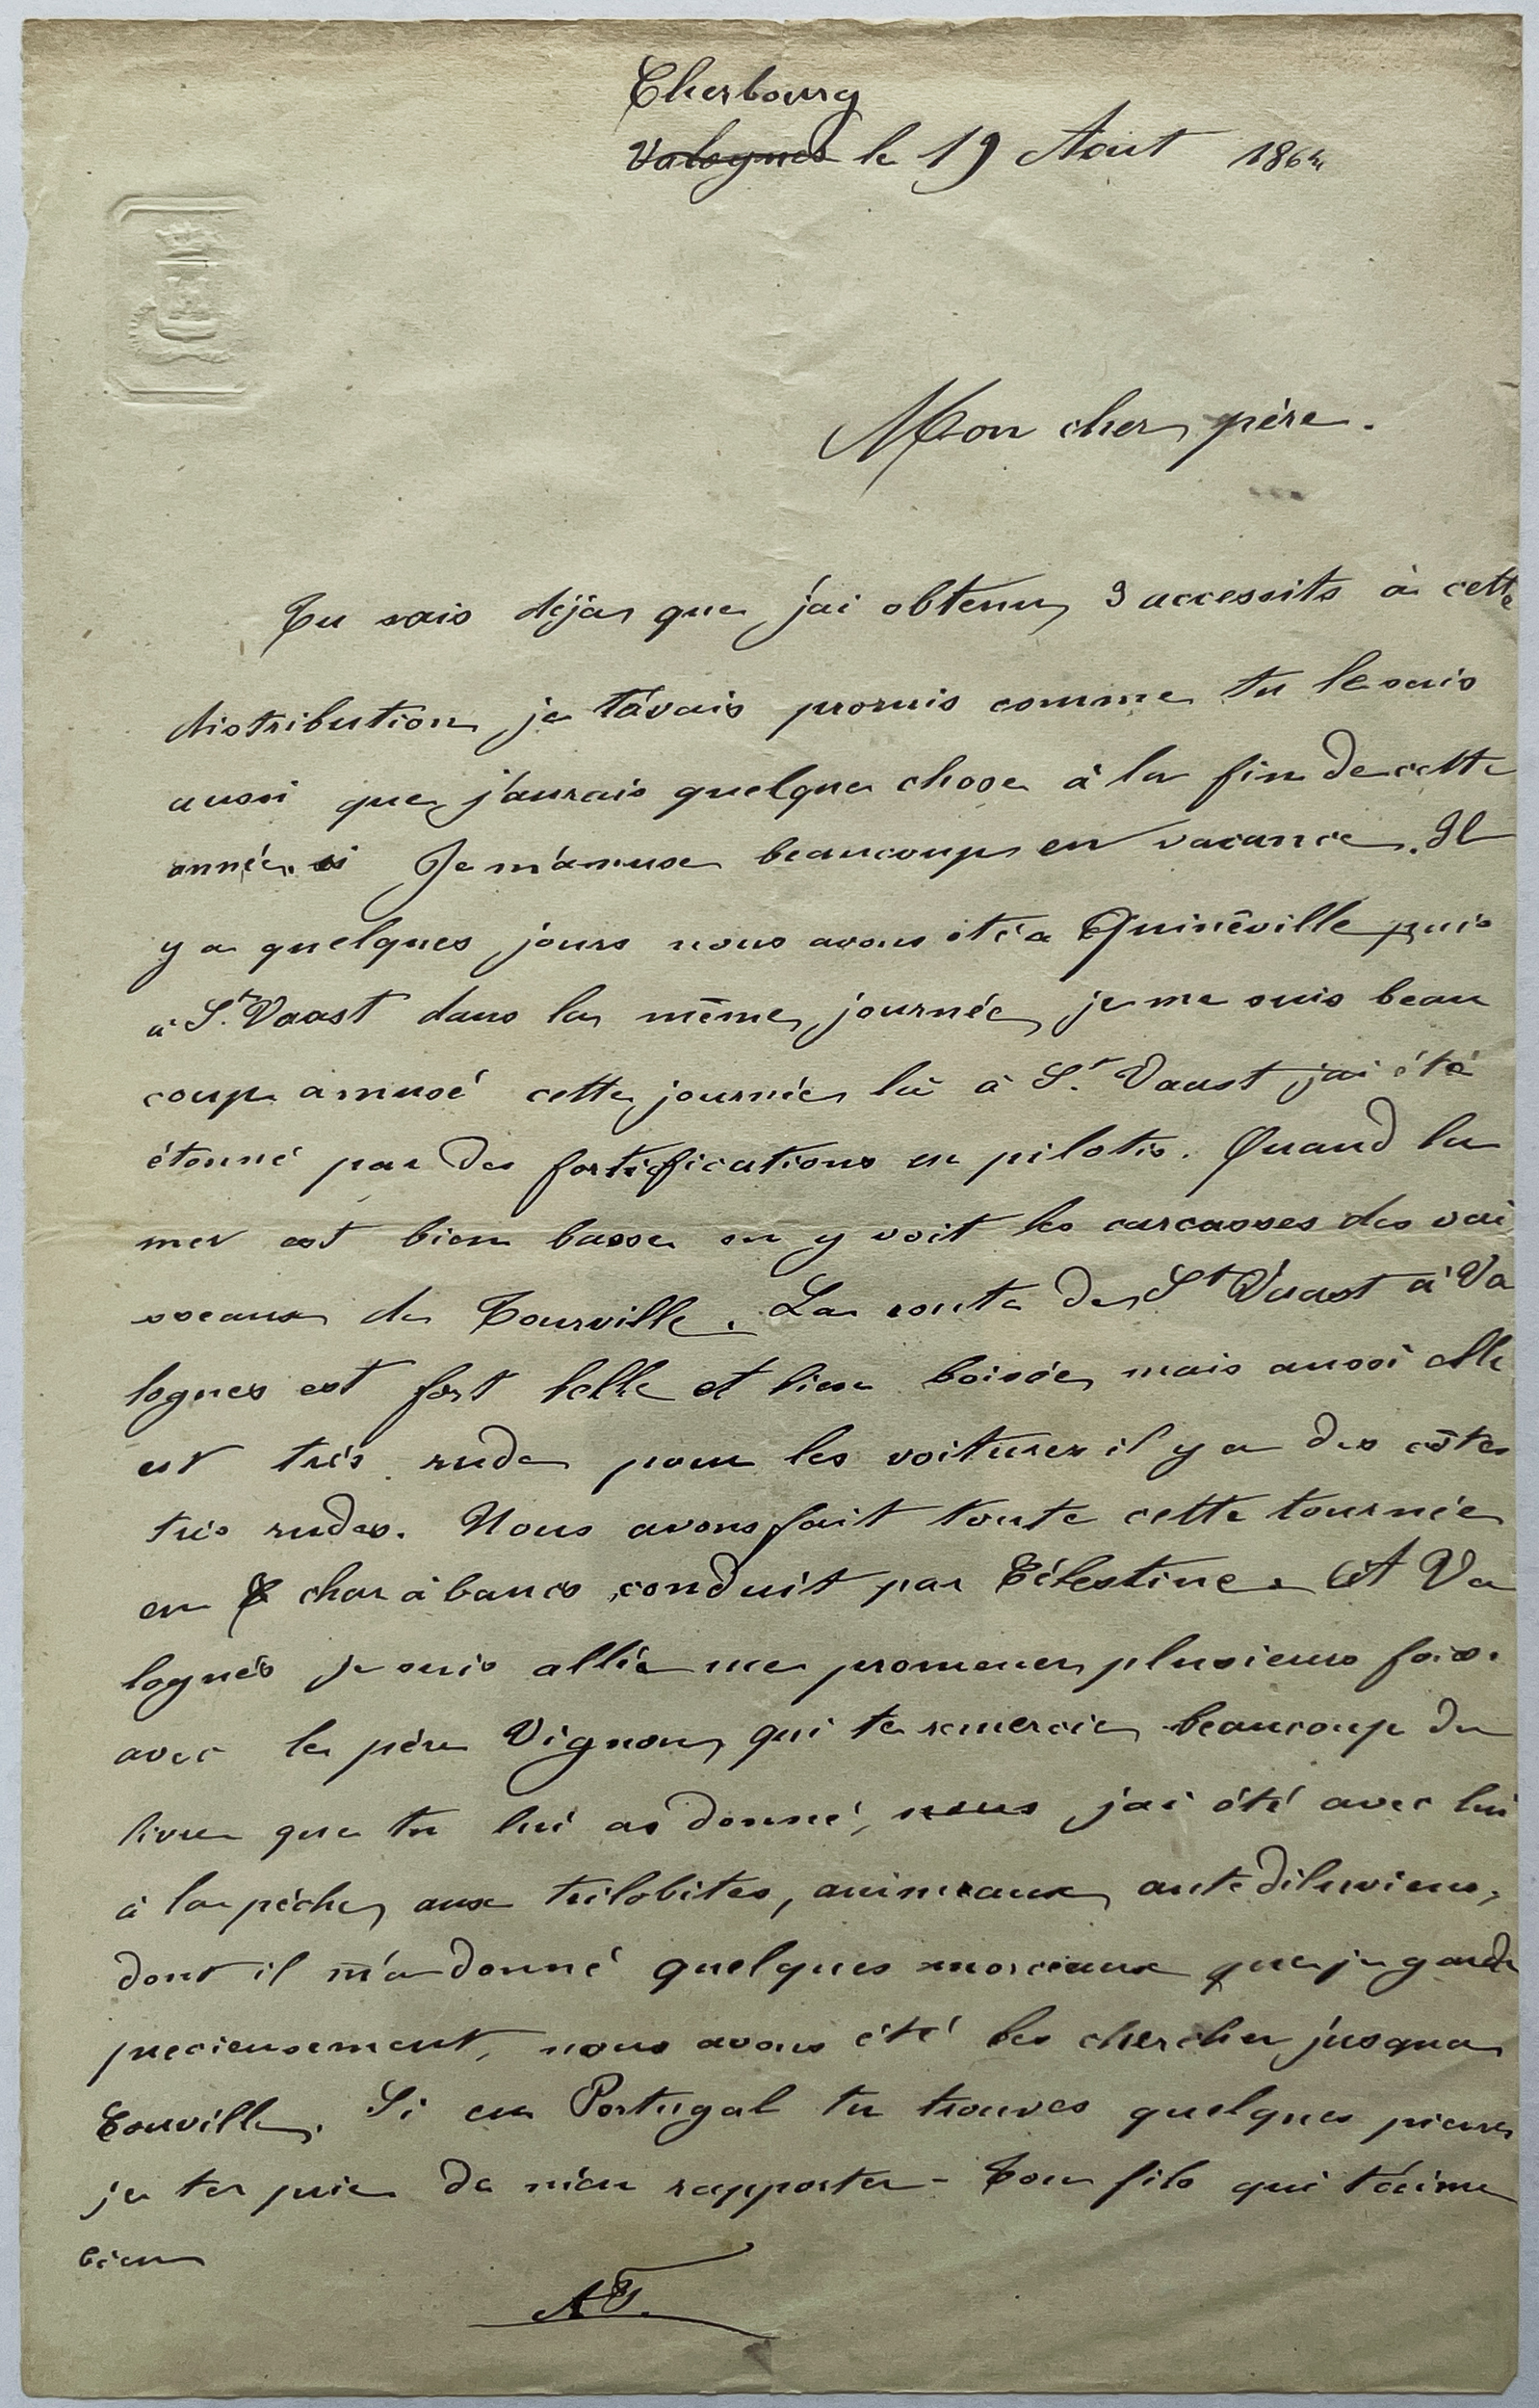 Cherbourg
Valognes le 19 Aout 1864
Mon cher père.
Tu sais déjà que j'ai obtenu 3 accessits à cette
distribution je t'avais promis comme tu le sais
aussi que j'aurais quelque chose à la fin de cette
année. Je m'amuse beaucoup en vacance. Il
y a quelques jours nous avons été a Quinéville puis
à St. Vaast dans la même journée, je me suis beau
coup amusé cette journée là à St. Vaast j'ai été
étonné par des fortifications en pilotis. Quand la
mer est bien basse on y voit les carcasses des vai
sseaux de Tourville. La route de St Vaast à Va
lognes est fort belle et bien boisée, mais aussi elle
est très rude pour les voitures il y a des côtes
très rudes. Nous avons fait toute cette tournée
en char à bancs conduit par Célestine. Et A Va
lognes je suis allé me promener plusieurs fois.
avec le père Vignon, qui te remercie beaucoup du
livre que tu lui as donné, nous j'ai été avec lui
à la pêche, aux trilobites, animaux antediluviens,
dont il m'a donné quelques morceaux que je garde
precieusement, nous avons été les chercher jusqua
Couville. Si en Portugal tu trouves quelques pierres
je te prie de m'en rapporter - Ton fils qui t'aime
bien
AT.